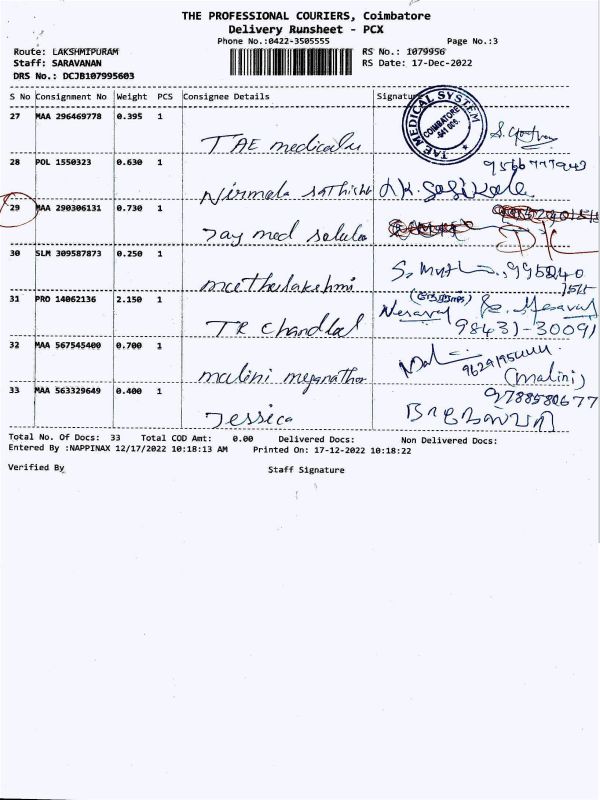 THE PROFESSIONAL COURIERS, Coimbatore
Delivery Runsheet - PCX
Phone No.:0422-3505555 Page No.:3
Route: LAKSHMIPURAM RS No.: 1079956
Staff: SARAVANAN RS Date: 17-Dec-2022
DRS No.: DCJB107995603
S No Consignment No Weight PCS Consignee Details Signature
TAE MEDICAL SYSTEM
COIMBATORE
27 MAA 296469778 0.395 1
TAE medicals
28 POL 1550323 0.630 1
Nirmala sathish
29 MAA 290306131 0.730 1
Jay med
30 SLM 309587873 0.250 1
muthulakshmi
31 PRO 14062136 2.150 1
TR chandlal 98431-30091
32 MAA 567545400 0.700 1
malini meganathan (malini)
33 MAA 563329649 0.400 1 9788580677
Jessica
Total No. Of Docs: 33 Total COD Amt: 0.00 Delivered Docs: Non Delivered Docs:
Entered By :NAPPINAX 12/17/2022 10:18:13 AM Printed On: 17-12-2022 10:18:22
Verified By Staff Signature